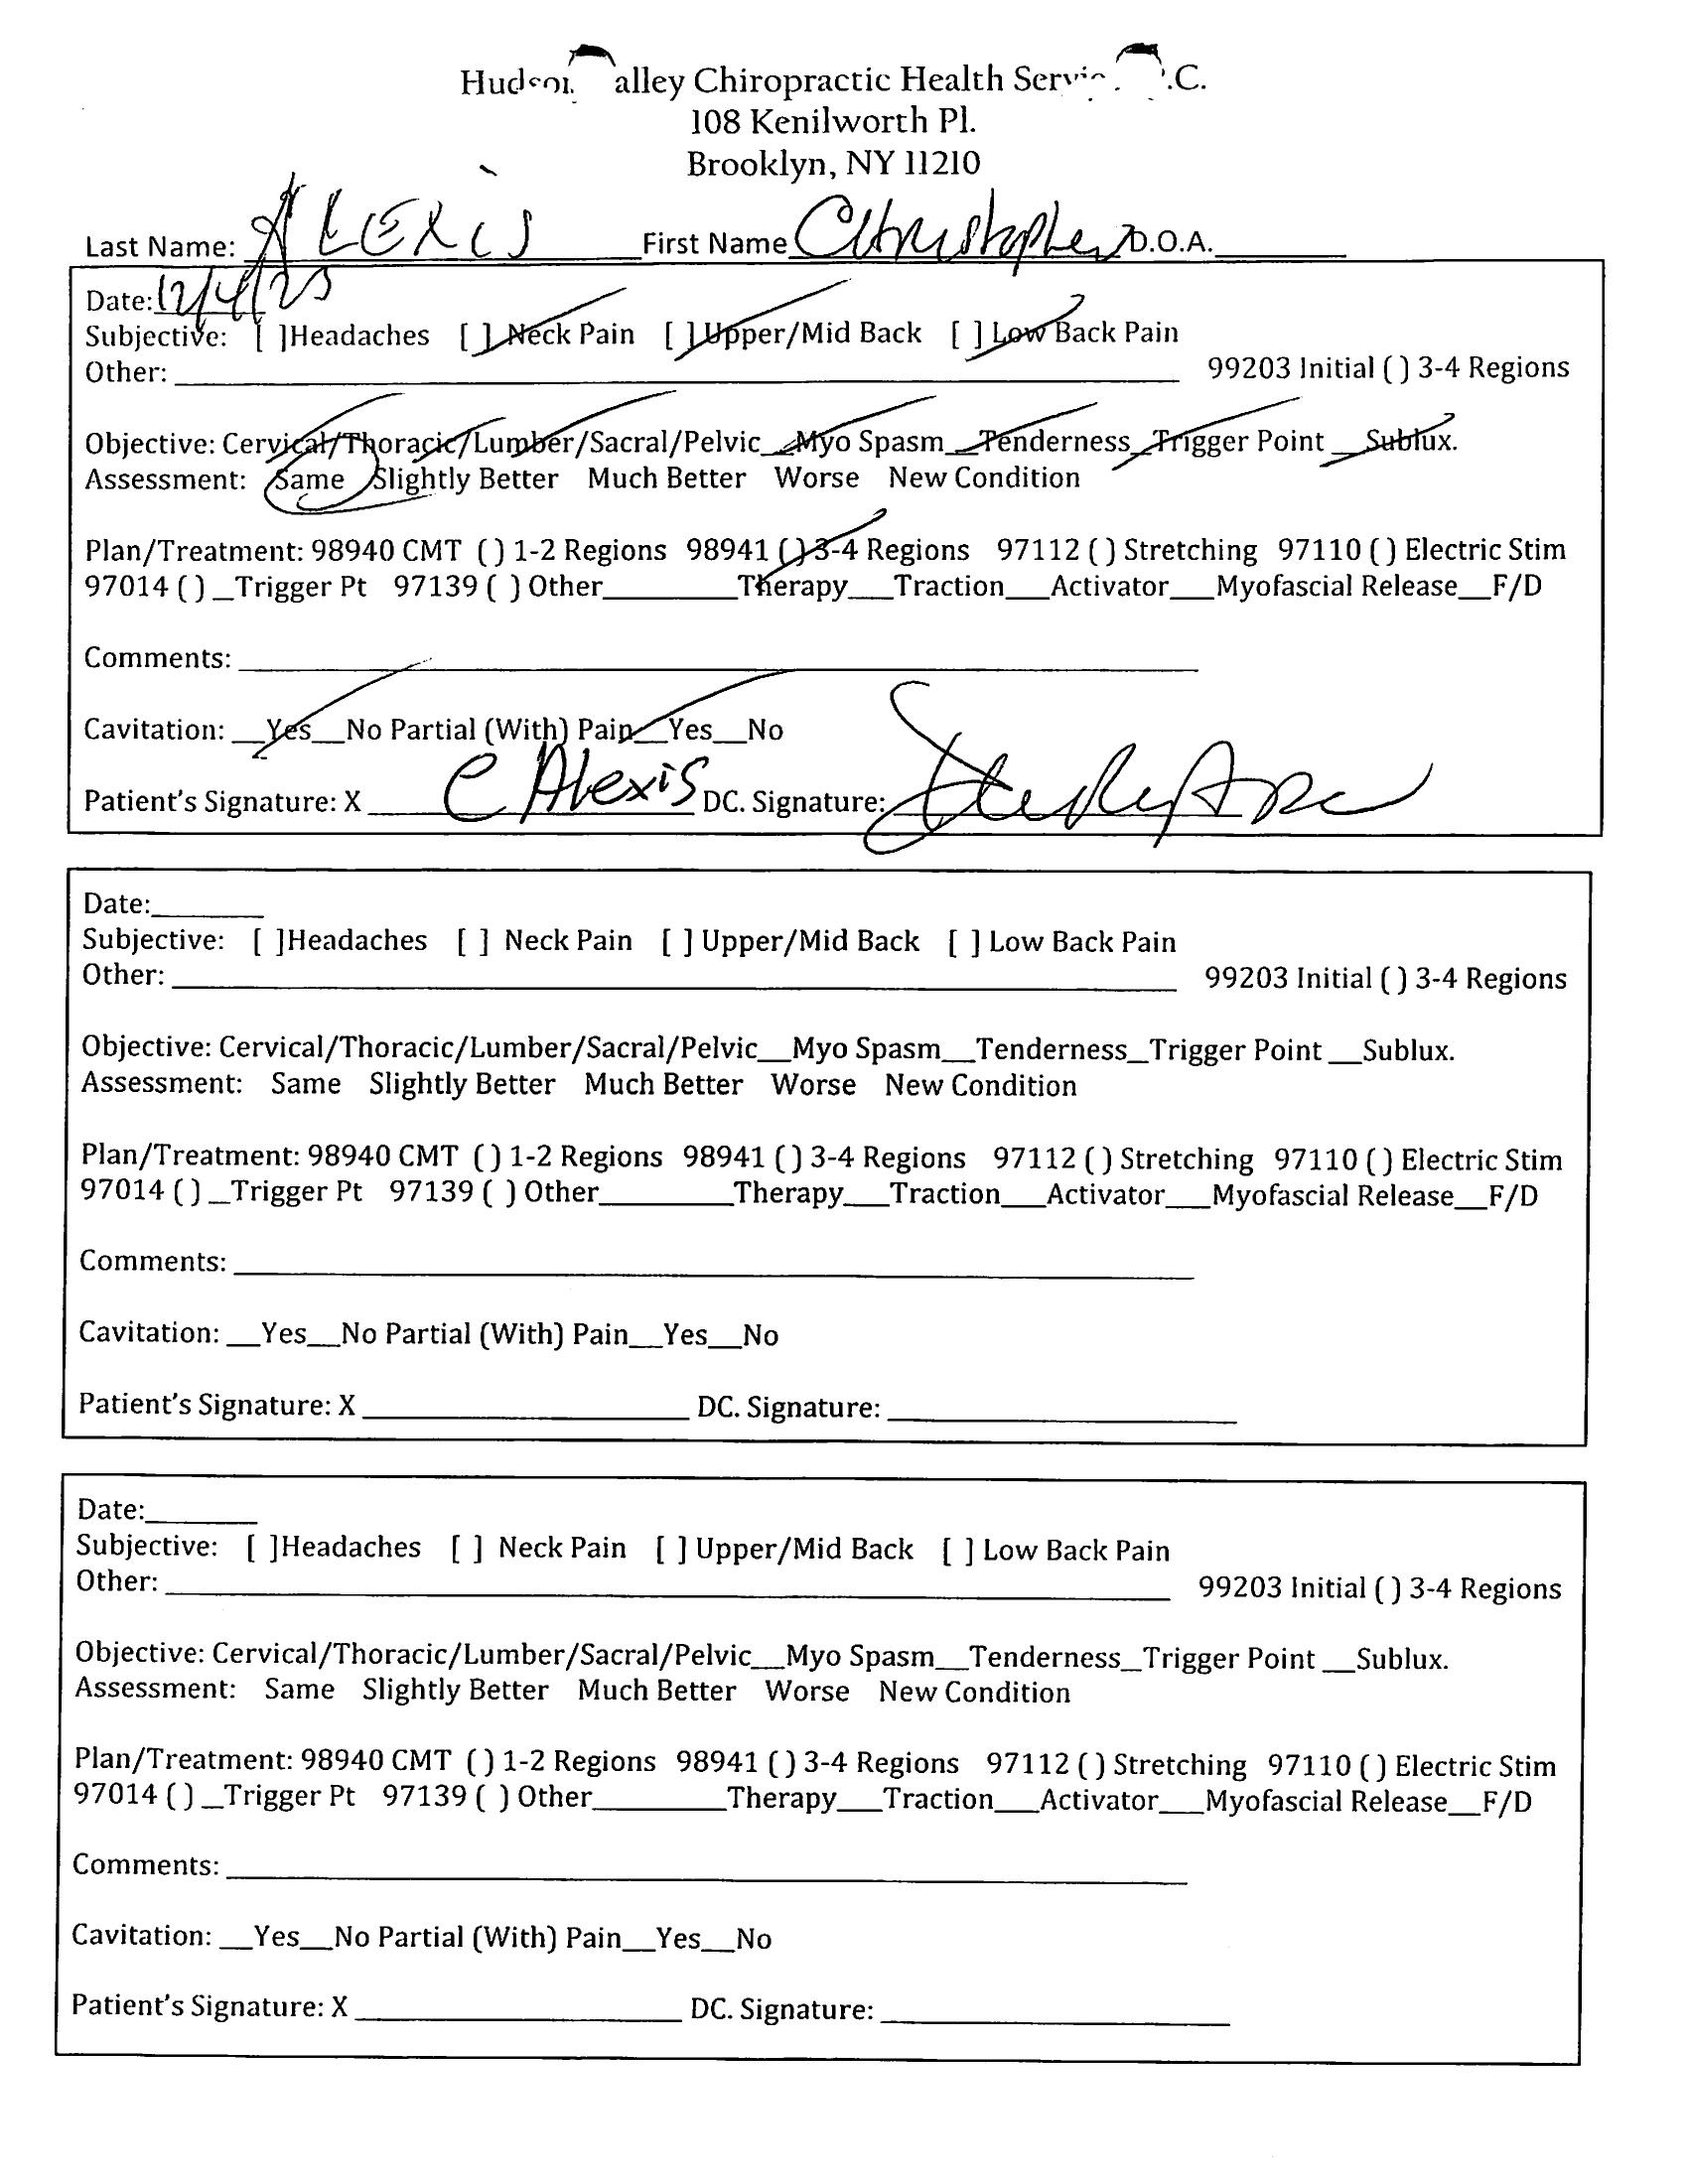 Hudson alley Chiropractic Health Servic .C.
108 Kenilworth Pl.
Brooklyn, NY 11210
Last Name: ALEXIS First Name Christopher D.O.A.
Date: 12/4/25
Subjective: [ ]Headaches [ ] Neck Pain [ ] Upper/Mid Back [ ] Low Back Pain
Other: 99203 Initial ( ) 3-4 Regions
Objective: Cervical/Thoracic/Lumber/Sacral/Pelvic__Myo Spasm__Tenderness_Trigger Point __Sublux.
Assessment: Same Slightly Better Much Better Worse New Condition
Plan/Treatment: 98940 CMT ( ) 1-2 Regions 98941 ( ) 3-4 Regions 97112 ( ) Stretching 97110 ( ) Electric Stim
97014 ( ) _Trigger Pt 97139 ( ) Other________Therapy___Traction___Activator___Myofascial Release__F/D
Comments:
Cavitation: __Yes__No Partial (With) Pain__Yes__No
Patient's Signature: X C Alexis DC. Signature:
Date:
Subjective: [ ]Headaches [ ] Neck Pain [ ] Upper/Mid Back [ ] Low Back Pain
Other: 99203 Initial ( ) 3-4 Regions
Objective: Cervical/Thoracic/Lumber/Sacral/Pelvic__Myo Spasm__Tenderness_Trigger Point __Sublux.
Assessment: Same Slightly Better Much Better Worse New Condition
Plan/Treatment: 98940 CMT ( ) 1-2 Regions 98941 ( ) 3-4 Regions 97112 ( ) Stretching 97110 ( ) Electric Stim
97014 ( ) _Trigger Pt 97139 ( ) Other________Therapy___Traction___Activator___Myofascial Release__F/D
Comments:
Cavitation: __Yes__No Partial (With) Pain__Yes__No
Patient's Signature: X DC. Signature:
Date:
Subjective: [ ]Headaches [ ] Neck Pain [ ] Upper/Mid Back [ ] Low Back Pain
Other: 99203 Initial ( ) 3-4 Regions
Objective: Cervical/Thoracic/Lumber/Sacral/Pelvic__Myo Spasm__Tenderness_Trigger Point __Sublux.
Assessment: Same Slightly Better Much Better Worse New Condition
Plan/Treatment: 98940 CMT ( ) 1-2 Regions 98941 ( ) 3-4 Regions 97112 ( ) Stretching 97110 ( ) Electric Stim
97014 ( ) _Trigger Pt 97139 ( ) Other________Therapy___Traction___Activator___Myofascial Release__F/D
Comments:
Cavitation: __Yes__No Partial (With) Pain__Yes__No
Patient's Signature: X DC. Signature: